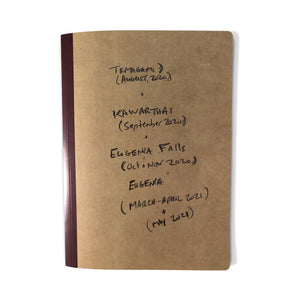 TEMAGAMI
(AUGUST, 2020)
+
KAWARTHAS
(September 2020)
+
EUGENIA FALLS
(Oct + Nov 2020)
EUGENIA
(MARCH-APRIL 2021)
+
(MAY 2021)